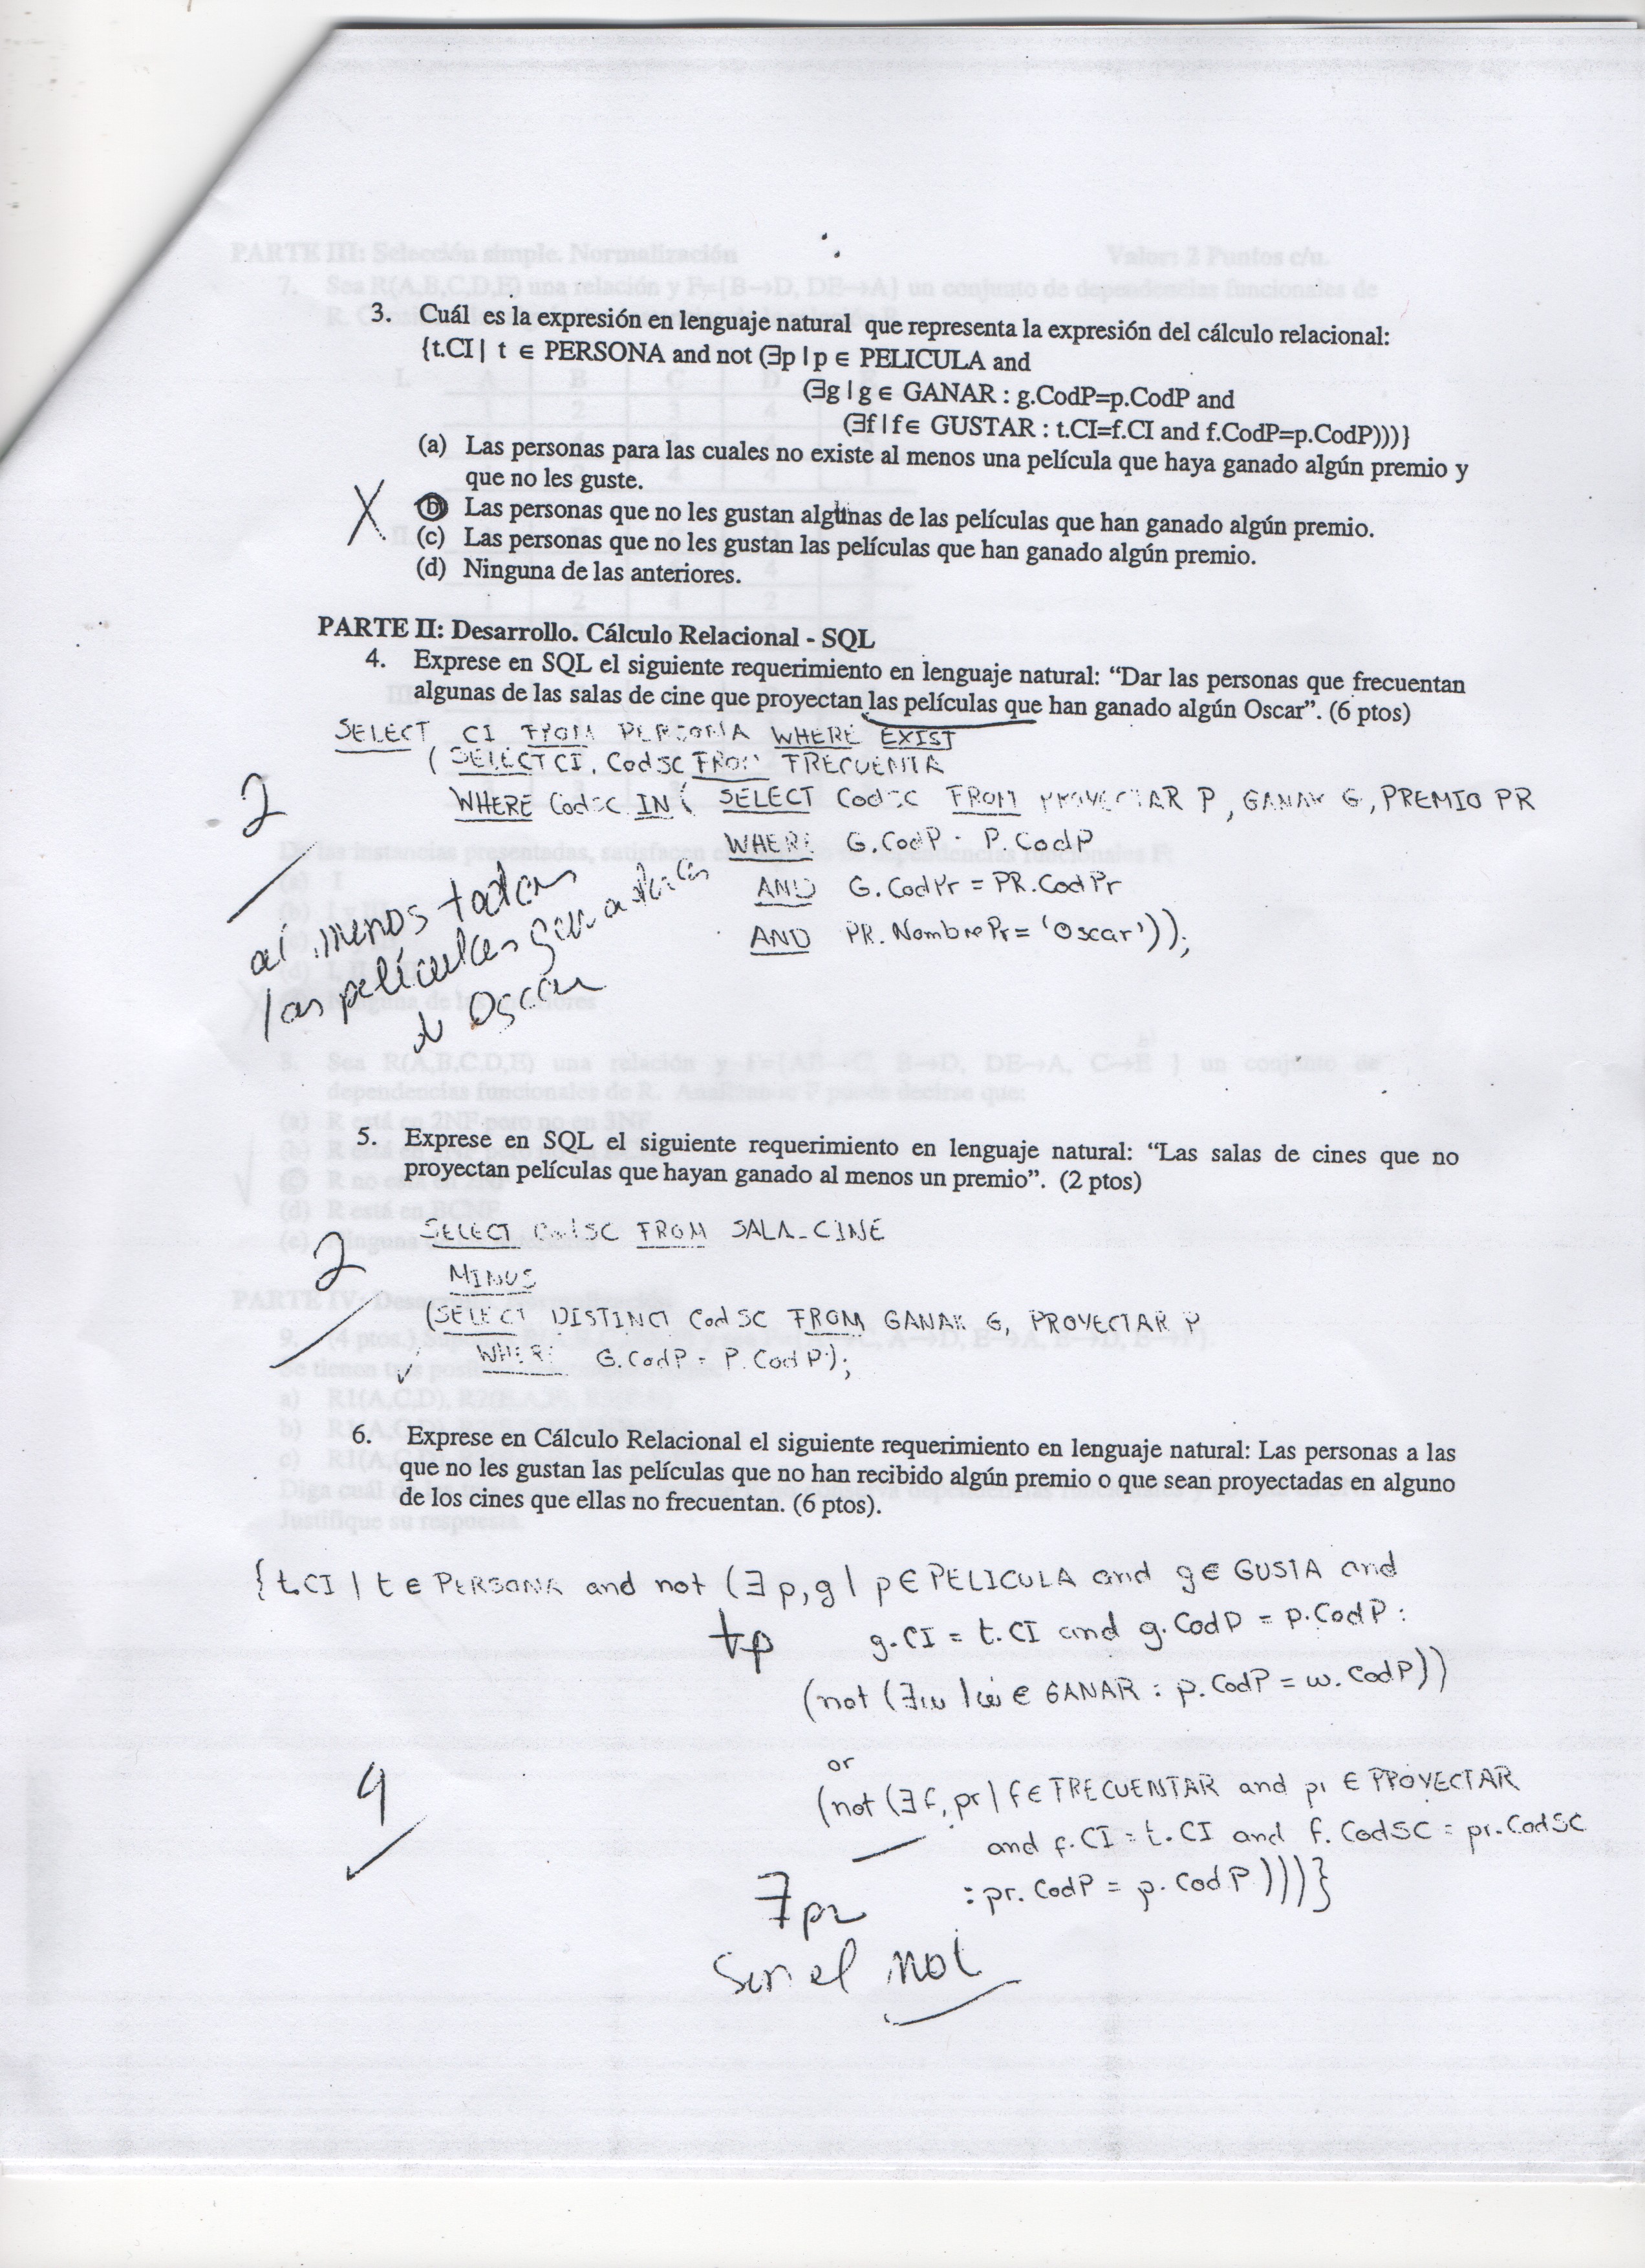 3. Cuál es la expresión en lenguaje natural que representa la expresión del cálculo relacional:
{t.CI | t ∈ PERSONA and not (∃p | p ∈ PELICULA and
(∃g | g ∈ GANAR : g.CodP=p.CodP and
(∃f | f ∈ GUSTAR : t.CI=f.CI and f.CodP=p.CodP)))}
(a) Las personas para las cuales no existe al menos una película que haya ganado algún premio y
que no les guste.
X (b) Las personas que no les gustan algunas de las películas que han ganado algún premio.
(c) Las personas que no les gustan las películas que han ganado algún premio.
(d) Ninguna de las anteriores.
PARTE II: Desarrollo. Cálculo Relacional - SQL
4. Exprese en SQL el siguiente requerimiento en lenguaje natural: “Dar las personas que frecuentan
algunas de las salas de cine que proyectan las películas que han ganado algún Oscar”. (6 ptos)
SELECT CI FROM PERSONA WHERE EXIST
(SELECT CI, CodSC FROM FRECUENTA
WHERE CodSC IN ( SELECT CodSC FROM PROYECTAR P, GANAR G, PREMIO PR
WHERE G.CodP = P.CodP
AND G.CodPr = PR.CodPr
AND PR.NombrePr = 'Oscar'));
2
al menos todas
las películas
Oscar
5. Exprese en SQL el siguiente requerimiento en lenguaje natural: “Las salas de cines que no
proyectan películas que hayan ganado al menos un premio”. (2 ptos)
SELECT CodSC FROM SALA_CINE
MINUS
(SELECT DISTINCT CodSC FROM GANAR G, PROYECTAR P
WHERE G.CodP = P.CodP);
2
6. Exprese en Cálculo Relacional el siguiente requerimiento en lenguaje natural: Las personas a las
que no les gustan las películas que no han recibido algún premio o que sean proyectadas en alguno
de los cines que ellas no frecuentan. (6 ptos).
{t.CI | t ∈ PERSONA and not (∃ p,g | p ∈ PELICULA and g ∈ GUSTA and
g.CI = t.CI and g.CodP = p.CodP :
(not (∃w | w ∈ GANAR : p.CodP = w.CodP))
or
(not (∃ f, pr | f ∈ FRECUENTAR and pr ∈ PROYECTAR
and f.CI = t.CI and f.CodSC = pr.CodSC
: pr.CodP = p.CodP)))}
4
∃pr
Sin el not